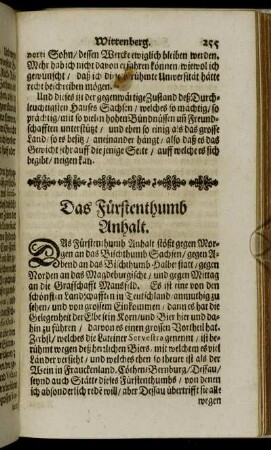 Wittenberg. 255
vorti Sohn / dessen Wercke ewiglich bleiben werden.
Mehr hab ich nicht davon erfahren können / wiewol ich
gewünscht / daß ich die berühmte Universität hätte
recht beschreiben mögen.
Und dieses ist der gegenwärtige Zustand deß Durch-
leuchtigsten Hauses Sachsen / welches so mächtig / so
prächtig / mit so vielen hohen Bündnüssen uñ Freund-
schafften unterstützt / und eben so einig als das grosse
Land / so es besitz / aneinander hängt / also daß es das
Gewicht sehr auff die jenige Seite / auff welche es sich
begibt / neigen kan.
Das Fürstenthumb
Anhalt.
DAs Fürstenthumb Anhalt stößt gegen Mor-
gen an das Bischthumb Sachsen / gegen A-
bend an das Bischthumb Halberstatt / gegen
Norden an das Magdeburgische / und gegen Mittag
an die Grafschafft Mansfeld. Es ist eine von den
schönsten Landschafften in Teutschland / anmuthig zu
sehen / und von grossem Einkommen / dann es hat die
Gelegenheit der Elbe sein Korn / und Bier hier und da-
hin zu führen / davon es einen grossen Vortheil hat.
Zerbst / welches die Lateiner Servestra genennt / ist be-
rühmt wegen deß herzlichen Biers, mit welchem es viel
Länder versieht / und welches eben so theuer ist als der
Wein in Franckenland. Cöthen / Bernburg / Dessau /
seynd auch Stätte dieses Fürstenthumbs / von denen
ich absonderlich redē will / aber Dessau übertrifft sie alle
wegen